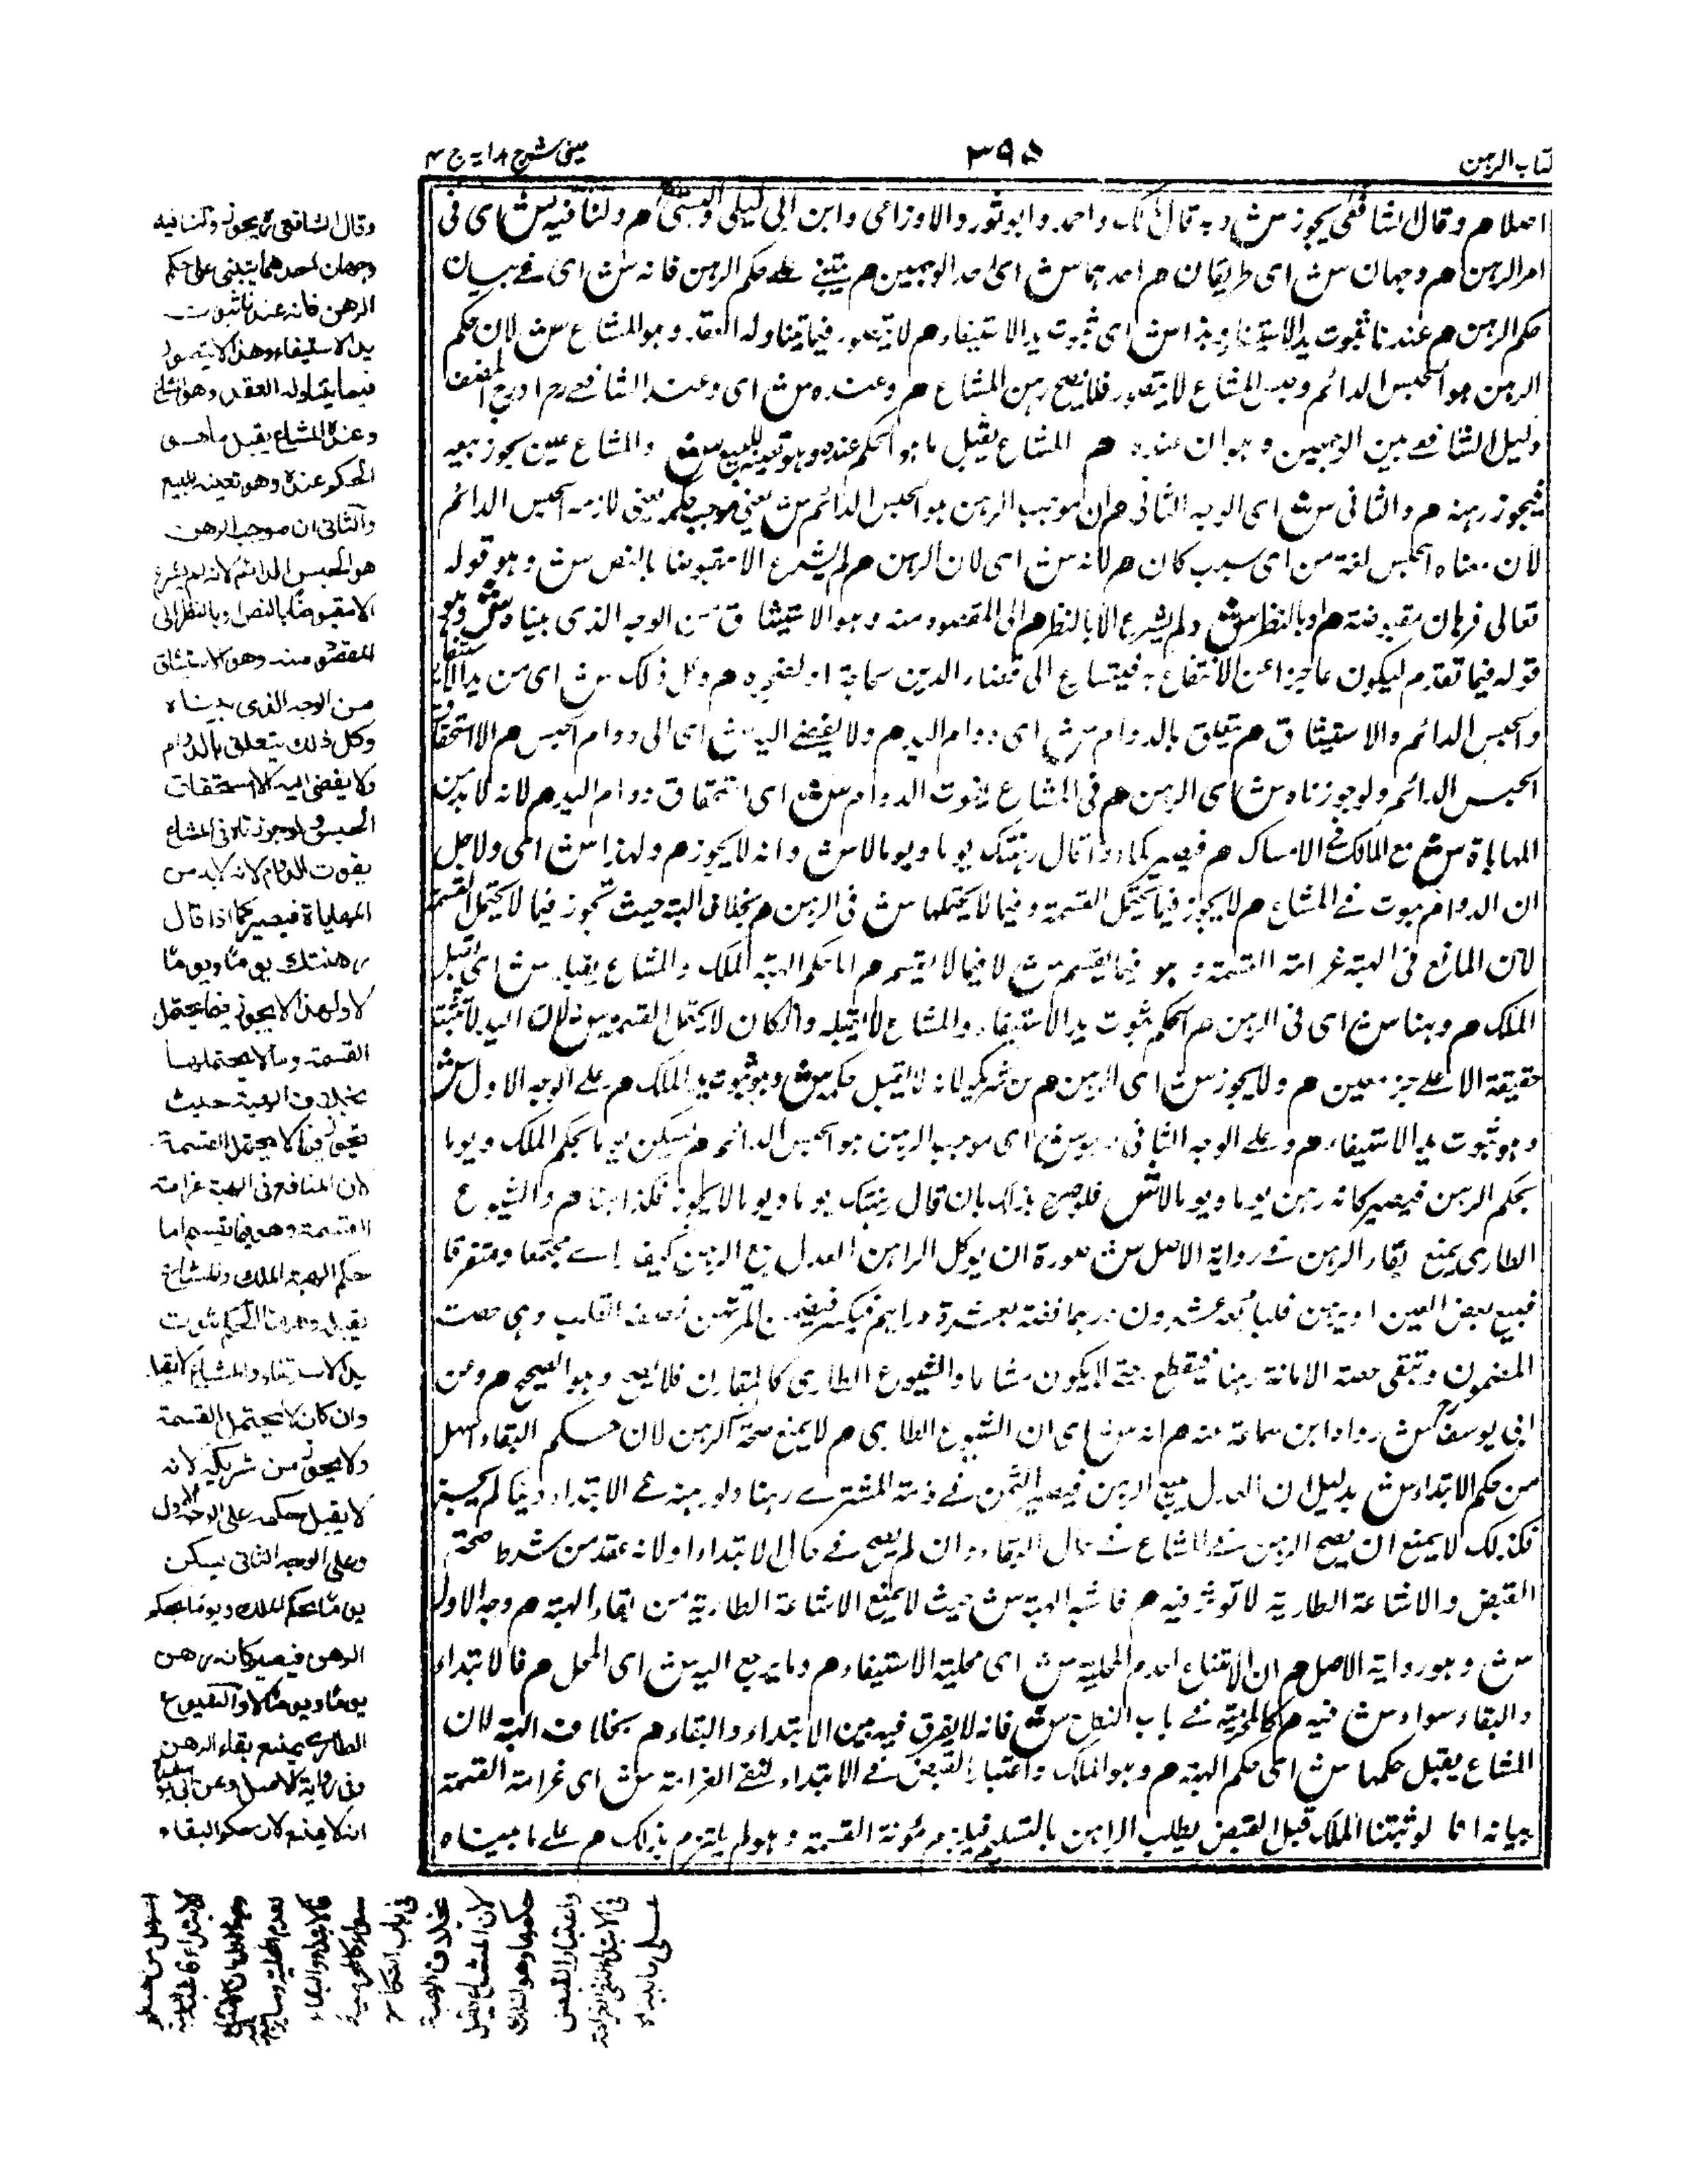 كتاب الرهن
٣٩٥
عینی شرح هدایه ج ٤
اصلا م وقال الشافعی یجوز ش وبه قال مالک واحمد وابو ثور والاوزاعی وابن ابی لیلی والبستی م ولنا فیه ش ای فی
امر الرهن م وجهان ش ای طریقان م احدهما ش ای احد الوجهین م یبتنی علی حکم الرهن فانه ش ای فی بیان
حکم الرهن م عندنا ثبوت ید الاستیفاء وهذا ش ای ثبوت ید الاستیفاء م لا یتصور فیما یتناوله العقد وهو المشاع ش لان حکم
الرهن هو الحبس الدائم وحبس المشاع لا یتصور فلا یصح رهن المشاع م وعنده ش ای وعند الشافعی رح ادرج المصنف
دلیل الشافعی بین الوجهین وهو ان عنده م المشاع یقبل ما هو الحکم عنده وهو تعینه للبیع ش والمشاع عین یجوز بیعه
فیجوز رهنه م والثانی ش ای الوجه الثانی م ان موجب الرهن هو الحبس الدائم ش یعنی موجب حکمه یعنی لازمه الحبس الدائم
لان معناه الحبس لغة من ای سبب کان م لانه ش ای لان الرهن م لم یشرع الا مقبوضا بالنص ش وهو قوله
تعالی فرهان مقبوضة م او بالنظر ش ولم یشرع الا بالنظر م الی المقصود منه وهو الاستیثاق من الوجه الذی بیناه ش وهو
قوله فیما تقدم لیکون عاجزا عن الانتفاع به فیتسارع الی قضاء الدین لحاجة او لضجره م وکل ذلک ش ای من ید الاستیفاء
والحبس الدائم والاستیثاق م یتعلق بالدوام ش ای دوام الید م ولا یفضی الیه ش ای الی دوام الحبس م الا استحقاق
الحبس الدائم ولو جوزناه ش ای الرهن م فی المشاع یفوت الدوام ش ای استحقاق دوام الید م لانه لا بد من
المهایاة ش مع المالک فی الامساک م فیصیر کما اذا قال رهنتک یوما ویوما لا ش وانه لا یجوز م ولهذا ش ای ولاجل
ان الدوام یفوت فی المشاع م لا یجوز فیما یحتمل القسمة وفیما لا یحتملها ش فی الرهن م بخلاف الهبة حیث تجوز فیما لا یحتمل القسمة
لان المانع فی الهبة غرامة القسمة وهو فیما یقسم ش لا فیما لا یقسم م اما حکم الهبة الملک والمشاع یقبله ش ای یقبل
الملک م وهنا ش ای فی الرهن م الحکم ثبوت ید الاستیفاء والمشاع لا یقبله وان کان لا یحتمل القسمة ش لان الید لا تثبت
حقیقة الا علی جزء معین م ولا یجوز ش ای الرهن م من شریکه لانه لا یقبل حکمه ش وهو ثبوت ید الملک م علی الوجه الاول ش
وهو ثبوت ید الاستیفاء م وعلی الوجه الثانی ش وهو ای موجب الرهن هو الحبس الدائم م یسکن یوما بحکم الملک ویوما
بحکم الرهن فیصیر کانه رهن یوما ویوما لا ش فلو صرح بذلک بان قال رهنتک یوما ویوما لا یجوز فکذا هنا م والشیوع
الطاری یمنع بقاء الرهن فی روایة الاصل ش صورة ان یوکل الراهن العدل ببیع الرهن کیف رای مجتمعا ومتفرقا
فیبیع بعض العین او یرهن قلبا بعشرون درهما فضة بعشرة دراهم فیکسر فیضمن المرتهن نصف القلب وهی حصة
المضمون وتبقی حصة الامانة رهنا فیقطع حتی لا یکون مشاعا والشیوع الطاری کالمقارن فلا یصح وهو الصحیح م وعن
ابی یوسف ش رواه ابن سماعة عنه م انه ش ای ان الشیوع الطاری م لا یمنع صحة الرهن لان حکم البقاء اسهل
من حکم الابتداء ش بدلیل ان العدل یبیع الرهن فیصیر الثمن فی ذمة المشتری رهنا ولو رهنه فی الابتداء دینا لم یجز
فکذلک لا یمنع ان یصح الرهن فی المشاع فی حال البقاء وان لم یصح فی حال الابتداء او لانه عقد من شرط صحته
القبض والاشاعة الطاریة لا تؤثر فیه م فاشبه الهبة ش حیث لا یمنع الاشاعة الطاریة من بقاء الهبة م وجه الاول
ش وهو روایة الاصل م ان الامتناع لعدم المحلیة ش ای محلیة الاستیفاء م وما یرجع الیه ش ای المحل م فالابتداء
والبقاء سواء ش فیه م کالمحرمیة فی باب النکاح ش فانه لا یفرق فیه بین الابتداء والبقاء م بخلاف الهبة لان
المشاع یقبل حکمها ش ای حکم الهبة م وهو الملک واعتبار القبض فی الابتداء لنفی الغرامة ش ای غرامة القسمة
بیانه انا لو ثبتنا الملک قبل القبض یطلب الراهن بالتسلیم فیلزم مؤنة القسمة وهو لم یلتزم بذلک م علی ما بیناه
وقال الشافعی رح یجوز ولنا فیه
وجهان احدهما یبتنی علی حکم
الرهن فانه عندنا ثبوت
ید الاستیفاء وهذا لا یتصور
فیما یتناوله العقد وهو المشاع
وعنده المشاع یقبل ما هو
الحکم عنده وهو تعینه للبیع
والثانی ان موجب الرهن
هو الحبس الدائم لانه لم یشرع
الا مقبوضا بالنص او بالنظر الی
المقصود منه وهو الاستیثاق
من الوجه الذی بیناه
وکل ذلک یتعلق بالدوام
ولا یفضی الیه الا استحقاق
الحبس ولو جوزناه فی المشاع
یفوت الدوام لانه لا بد من
المهایاة فیصیر کما اذا قال
رهنتک یوما ویوما
لا ولهذا لا یجوز فیما یحتمل
القسمة وما لا یحتملها
بخلاف الهبة حیث
تجوز فیما لا یحتمل القسمة
لان المانع فی الهبة غرامة
القسمة وهو فیما یقسم اما
حکم الهبة الملک والمشاع
یقبله وهنا الحکم ثبوت
ید الاستیفاء والمشاع لا یقبله
وان کان لا یحتمل القسمة
ولا یجوز من شریکه لانه
لا یقبل حکمه علی الوجه الاول
وعلی الوجه الثانی یسکن
یوما بحکم الملک ویوما بحکم
الرهن فیصیر کانه رهن
یوما ویوما لا والشیوع
الطاری یمنع بقاء الرهن
فی روایة الاصل وعن ابی یوسف
انه لا یمنع لان حکم البقاء
اسهل من حکم
الابتداء فاشبه الهبة
وجه الاول ان الامتناع
لعدم المحلیة وما یرجع الیه
فالابتداء والبقاء
سواء کالمحرمیة
فی باب النکاح
بخلاف الهبة
لان المشاع یقبل
حکمها وهو الملک
واعتبار القبض
فی الابتداء لنفی الغرامة
علی ما بیناه